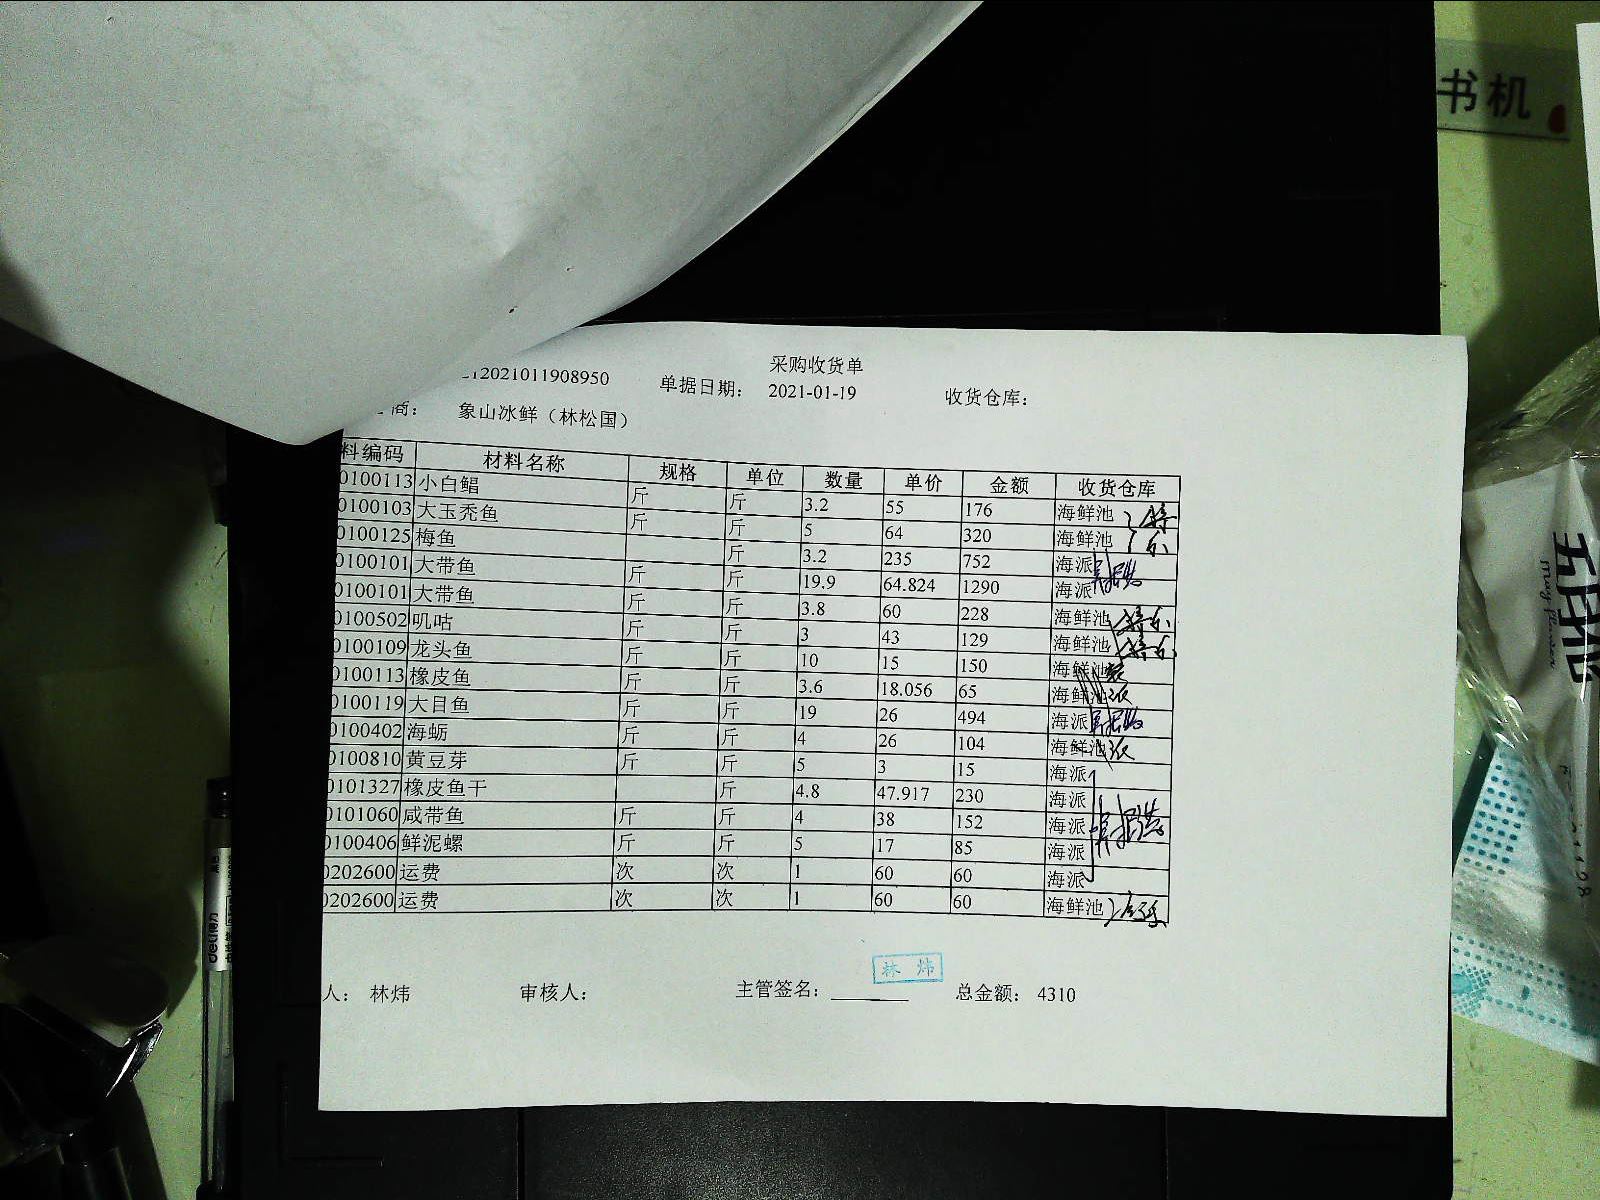 书机
采购收货单
12021011908950 单据日期: 2021-01-19 收货仓库:
商: 象山冰鲜（林松国）
料编码 材料名称 规格 单位 数量 单价 金额 收货仓库
0100113 小白鲳 斤 斤 3.2 55 176 海鲜池
0100103 大玉秃鱼 斤 斤 5 64 320 海鲜池
0100125 梅鱼 斤 3.2 235 752 海派
0100101 大带鱼 斤 斤 19.9 64.824 1290 海派
0100101 大带鱼 斤 斤 3.8 60 228 海鲜池
0100502 叽咕 斤 斤 3 43 129 海鲜池
0100109 龙头鱼 斤 斤 10 15 150 海鲜池
0100113 橡皮鱼 斤 斤 3.6 18.056 65 海鲜池
0100119 大目鱼 斤 斤 19 26 494 海派
0100402 海蛎 斤 斤 4 26 104 海鲜池
0100810 黄豆芽 斤 斤 5 3 15 海派
0101327 橡皮鱼干 斤 4.8 47.917 230 海派
0101060 咸带鱼 斤 斤 4 38 152 海派
0100406 鲜泥螺 斤 斤 5 17 85 海派
0202600 运费 次 次 1 60 60 海派
0202600 运费 次 次 1 60 60 海鲜池
林炜
人: 林炜 审核人: 主管签名: 总金额: 4310
五月花
May Flower
deli得力